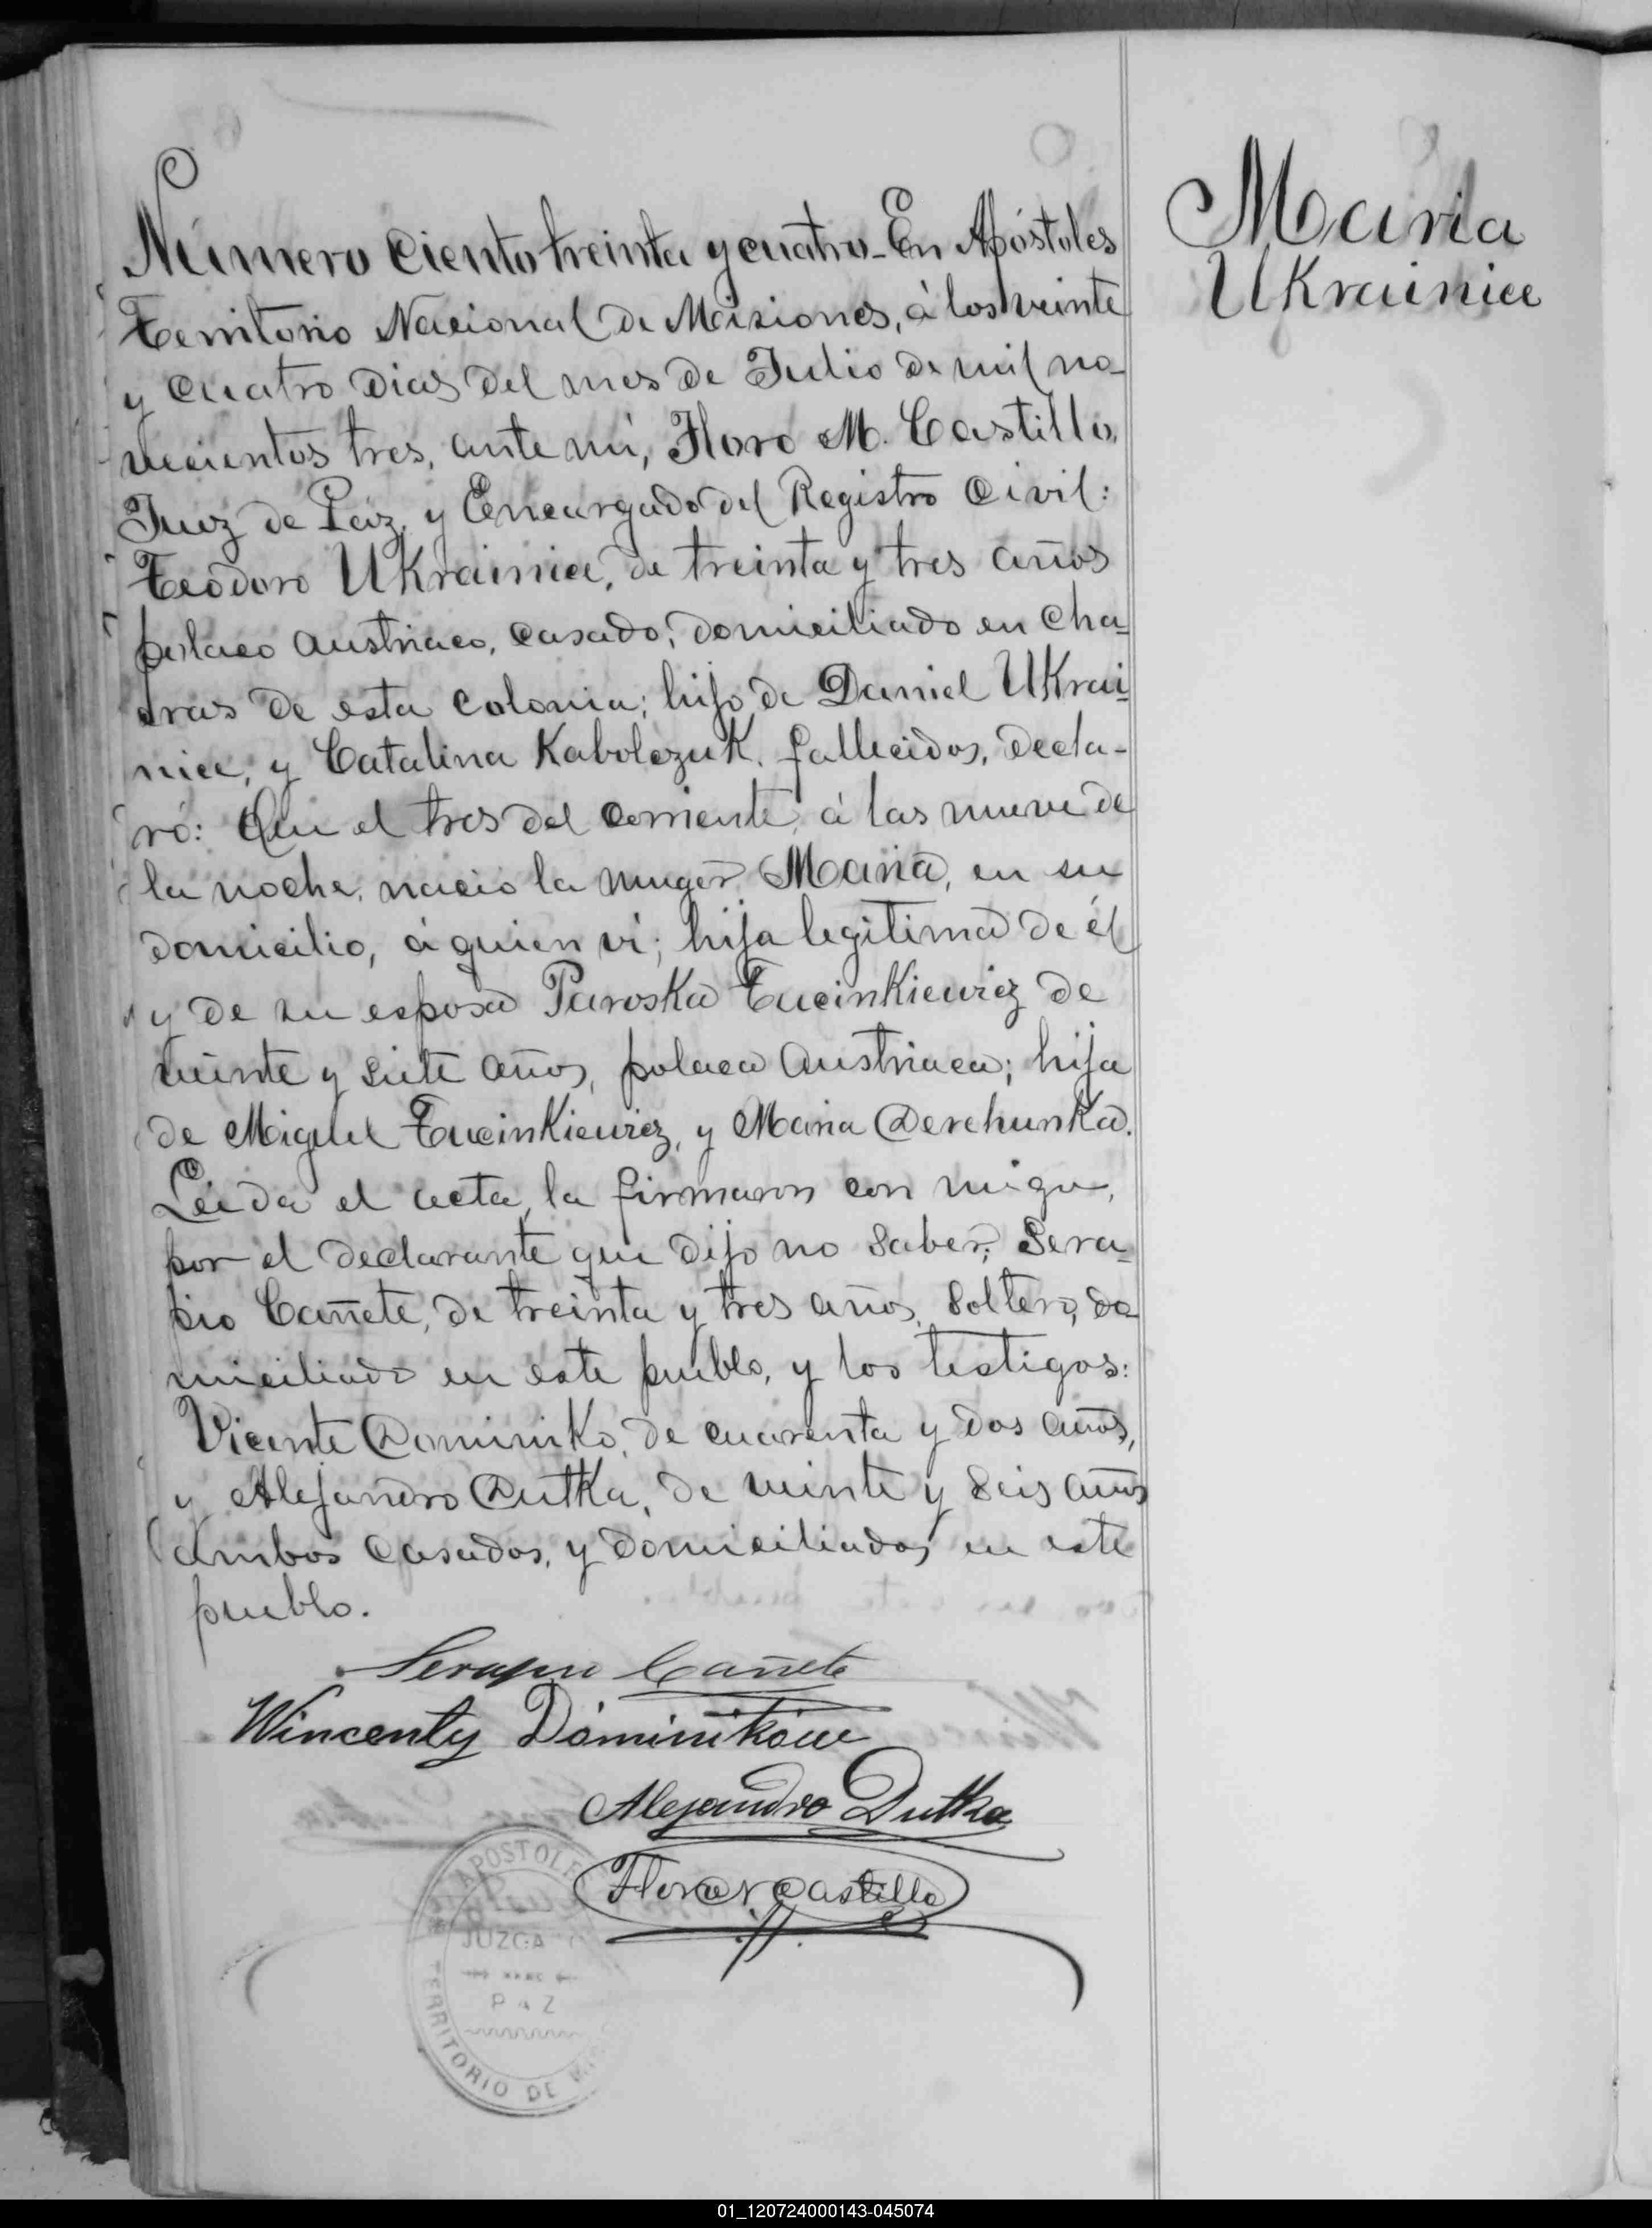 Maria
Ukrainiec
Número Ciento treinta y cuatro - En Apóstoles
Territorio Nacional de Misiones, á los veinte
y cuatro dias del mes de Julio de mil no-
vecientos tres, ante mí, Floro M. Castillo,
Juez de Paz, y Encargado del Registro Civil:
Teodoro Ukrainiec, de treinta y tres años
polaco austriaco, casado, domiciliado en cha-
cras de esta colonia; hijo de Daniel Ukrai-
niec, y Catalina Kabolczuk, fallecidos, decla-
ró: Que el tres del corriente, á las nueve de
la noche, nacio la muger Maria, en su
domicilio, á quien vi; hija legitima de él
y de su esposa Paroska Tucinkiewicz de
veinte y siete años, polaca austriaca; hija
de Miguel Tucinkiewicz, y Maria Derchunka.
Leida el acta, la firmaron con migo,
por el declarante que dijo no saber; Sera-
pio Cañete, de treinta y tres años, soltero, do-
miciliado en este pueblo, y los testigos:
Vicente Dominiko, de cuarenta y dos años,
y Alejandro Dutka, de veinte y seis años
ambos casados, y domiciliados en este
pueblo.
Serapio Cañete
Wincenty Dominików
Alejandro Dutka
Floro M Castillo
APOSTOLES
JUZGA
PAZ
TERRITORIO DE
01_120724000143-045074